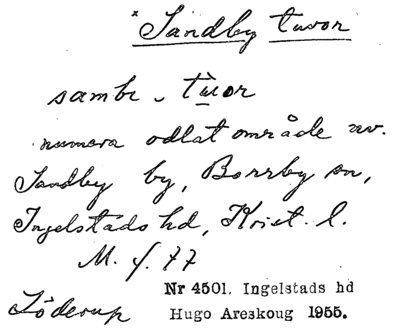 *Sandby tuvor
sambⱳ tùor
numera odlat område nv.
Sandby by, Borrby sn,
Ingelstads hd, Krist. l.
M. f. 77
Nr 4501. Ingelstads hd
Löderup Hugo Areskoug 1955.